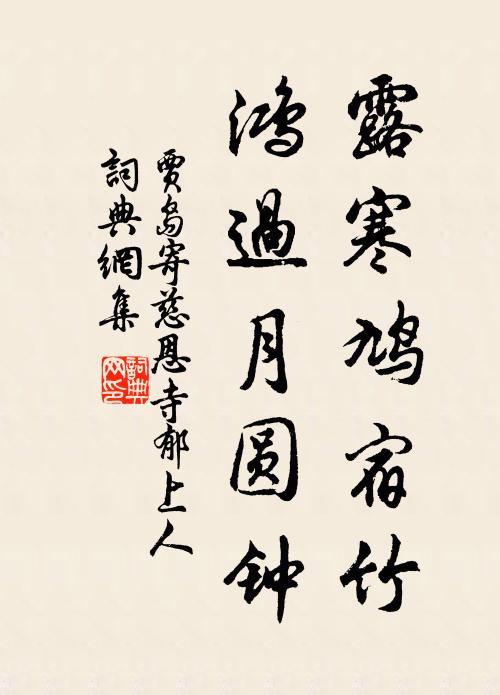 露寒鸠宿竹
鸿過月圆钟
賈島寄慈恩寺郁上人
詞典網集
詞典网印